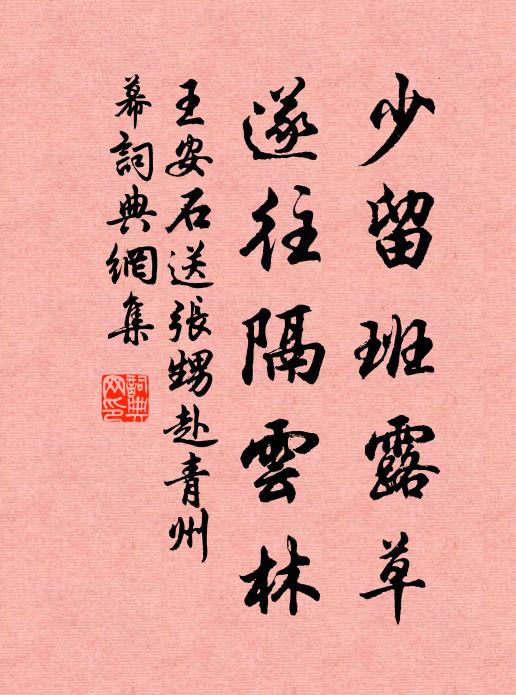 少留班露草
遂往隔雲林
王安石送張甥赴青州
幕詞典網集
詞典
网印